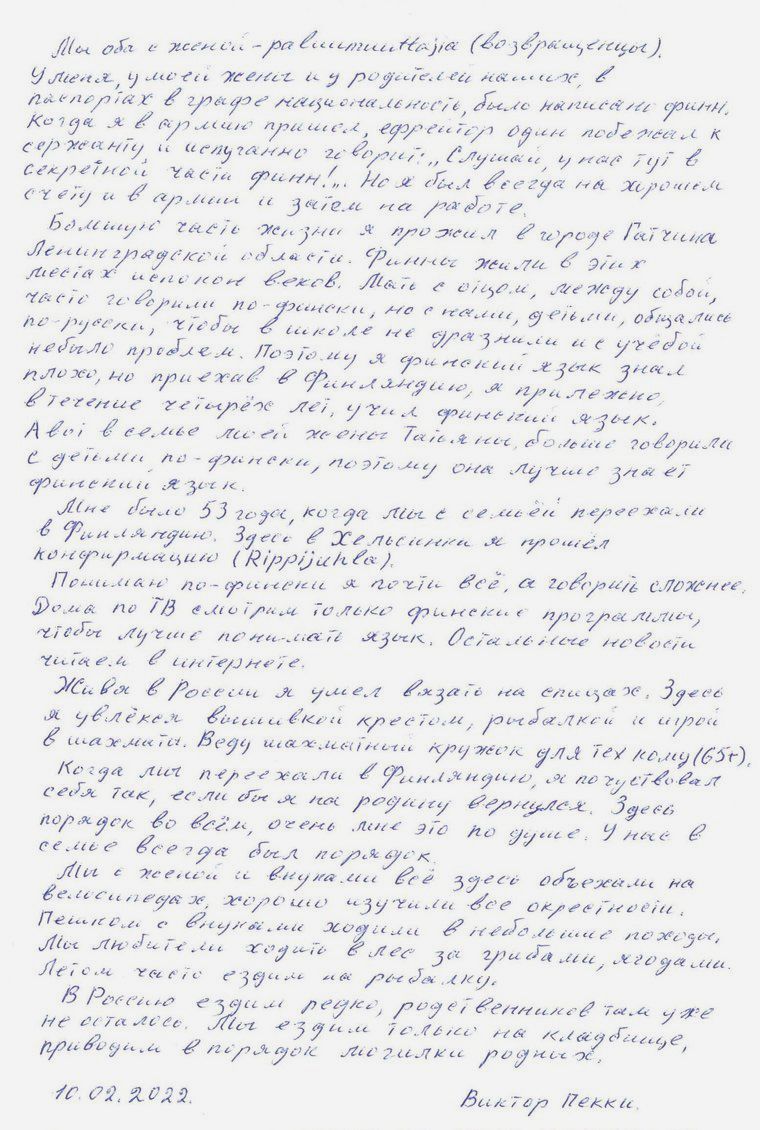 Мы оба с женой - paluumuuttajia (возвращенцы).
У меня, у моей жены и у родителей наших, в
паспортах в графе национальность, было написано финн.
Когда я в армию пришел, ефрейтор один побежал к
сержанту и испуганно говорит: „Слушай, у нас тут в
секретной части финн!". Но я был всегда на хорошем
счету и в армии и затем на работе.
Большую часть жизни я прожил в городе Гатчина
Ленинградской области. Финны жили в этих
местах испокон веков. Мать с отцом, между собой,
часто говорили по-фински, но с нами, детьми, общались
по-русски, чтобы в школе не дразнили и с учёбой
небыло проблем. Поэтому я финский язык знал
плохо, но приехав в Финляндию, я прилежно,
в течение четырёх лет, учил финский язык.
А вот в семье моей жены Татьяны, больше говорили
с детьми по-фински, поэтому она лучше знает
финский язык.
Мне было 53 года, когда мы с семьёй переехали
в Финляндию. Здесь в Хельсинки я прошёл
конфирмацию (Rippijuhla).
Понимаю по-фински я почти всё, а говорить сложнее.
Дома по ТВ смотрим только финские программы,
чтобы лучше понимать язык. Остальные новости
читаем в интернете.
Живя в России я умел вязать на спицах. Здесь
я увлёкся вышивкой крестом, рыбалкой и игрой
в шахматы. Веду шахматный кружок для тех кому (65+).
Когда мы переехали в Финляндию, я почуствовал
себя так, если бы я на родину вернулся. Здесь
порядок во всём, очень мне это по душе. У нас в
семье всегда был порядок.
Мы с женой и внуками всё здесь объехали на
велосипедах, хорошо изучили все окрестности.
Пешком с внуками ходили в небольшие походы.
Мы любители ходить в лес за грибами, ягодами.
Летом часто ездим на рыбалку.
В Россию ездим редко, родственников там уже
не осталось. Мы ездим только на кладбище,
приводим в порядок могилки родных.
10.02.2022. Виктор Пекки.